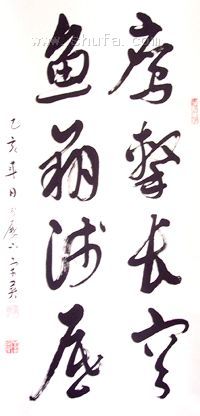 鹰击长空
鱼翔浅底
乙亥年日
www.shufa.com